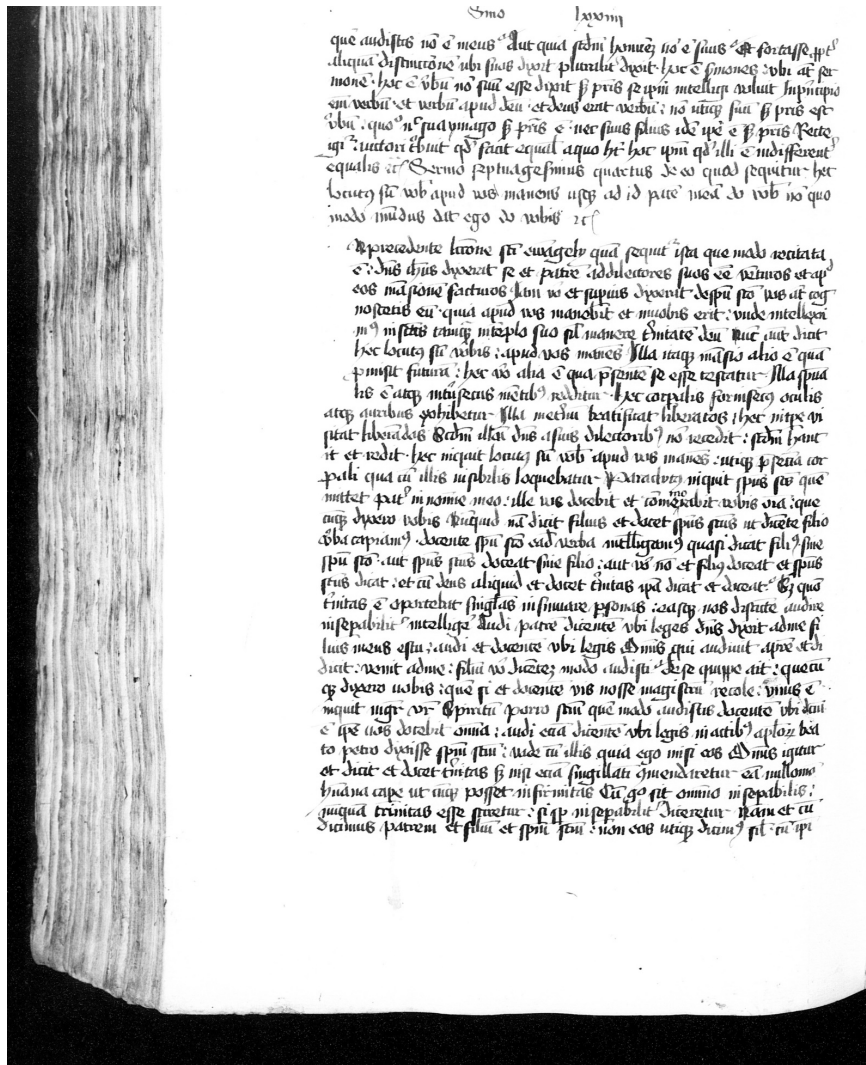 Smo lxxiiii
quē audistis nō ē meus Aut quia scdm hominē no ē suus Et fortasse ꝓpt
aliquā distinctionē ubi suas dixit pluralit dixit hoc ē smones ubi aūt ser
monē hoc ē v̄bū nō suū esse dixit sꝫ pris se ipm intelligi voluit In pncipio
eni verbū et verbū apud deū et deus erat verbū nō utiqꝫ suū sꝫ pris est
v̄bū quo n̄ sua ymago sꝫ pris ē nec suus filius idē ipe ē sꝫ pris Recte
igr auctori tbuit qd facit equal a quo ht hoc ipm qd illi ē indifferent
equalis ꝛc Sermo septuagesimus quartus de eo quod sequitur hec
locutꝰ sū vob apud vos manens usqꝫ ad id pacē meā do vob nō quo
modo mūdus dat ego do vobis ꝛc
In precedente lectione sci ewāgelij quā sequit ista que modo recitata
ē dns ihus dixerat se et patrē ad dilectores suos eē vēturos et apᵈ
eos māsionē facturos Iam vo et supius dixerat de spū sco vos aūt cog
noscetis eū quia apud vos manebit et in vobis erit unde intellexi
mꝰ in scis tamqꝫ in tēplo suo sil manere t̓nitatē deū Nūc aūt dicit
hec locutꝰ sū vobis apud vos manēs Illa itaqꝫ māsio alia ē quā
ꝓmisit futurā hec vo alia ē qua p̄sentē se esse testatur Illa spūa
lis ē atqꝫ intrīsecus mētibꝰ redditur hec corpalis forinsecꝰ oculis
atqꝫ auribus exhibetur Illa in et̓nū beatificat liberatos hec in tpe vi
sitat liberādos Scdm illā dns a suis dilectoribꝰ nō recedit scdm hanc
it et redit hec inquit locutꝰ sū vob apud vos manēs utiqꝫ p̄sencia cor
pali qua cū illis visibilis loquebatur Paraclitꝰ inquit spūs scs quē
mittet pat̓ in nomine meo ille vos docebit et comemorabit vobis oīa que
cūqꝫ dixero vobis Nūquid nā dicit filius et docet spūs scūs ut dicēte filio
v̄ba capiamꝰ docente spū sco eadē verba intelligamꝰ quasi dicat filiꝰ sine
spū sco aut spūs scus doceat sine filio aut vo nō et filiꝰ doceat et spūs
scus dicat et cū deus aliquid et docet t̓nitas ipā dicat et doceat Sꝫ quō
t̓nitas ē oportebat singlas insinuare psonas easqꝫ nos distcte audire
insepabilit intellige Audi patrē dicentē ubi leges dns dixit ad me fi
lius meus es tu audi et docentē ubi legis Omīs qui audivit a pre et di
dicit venit ad me filiū vo dicētē modo audisti de se quippe ait quecū
qꝫ dixero uobis quē si et docente vis nosse magistrū recole unus ē
inquit mgr vr Spiritū porro scūm quē modo audistis docentē ubi dictū
ē ipe uos docebit omnia audi eciā dicente ubi legis in actibꝰ aplorꝫ bea
to petro dixisse spm scūm vade cū illis quia ego misi eos Omīs igitur
et dicit et docet t̓nitas sꝫ nisi eciā singillati cōmendaretur eā nullomo
humana cape ut cūqꝫ posset infirmitas Cū gͦ sit omnino insepabilis
nūquā trinitas esse sciretur si sp insepabilit diceretur Nam et cū
dicimus patrem et filiū et spm scūm non eos utiqꝫ dicimꝰ sil cū ipi